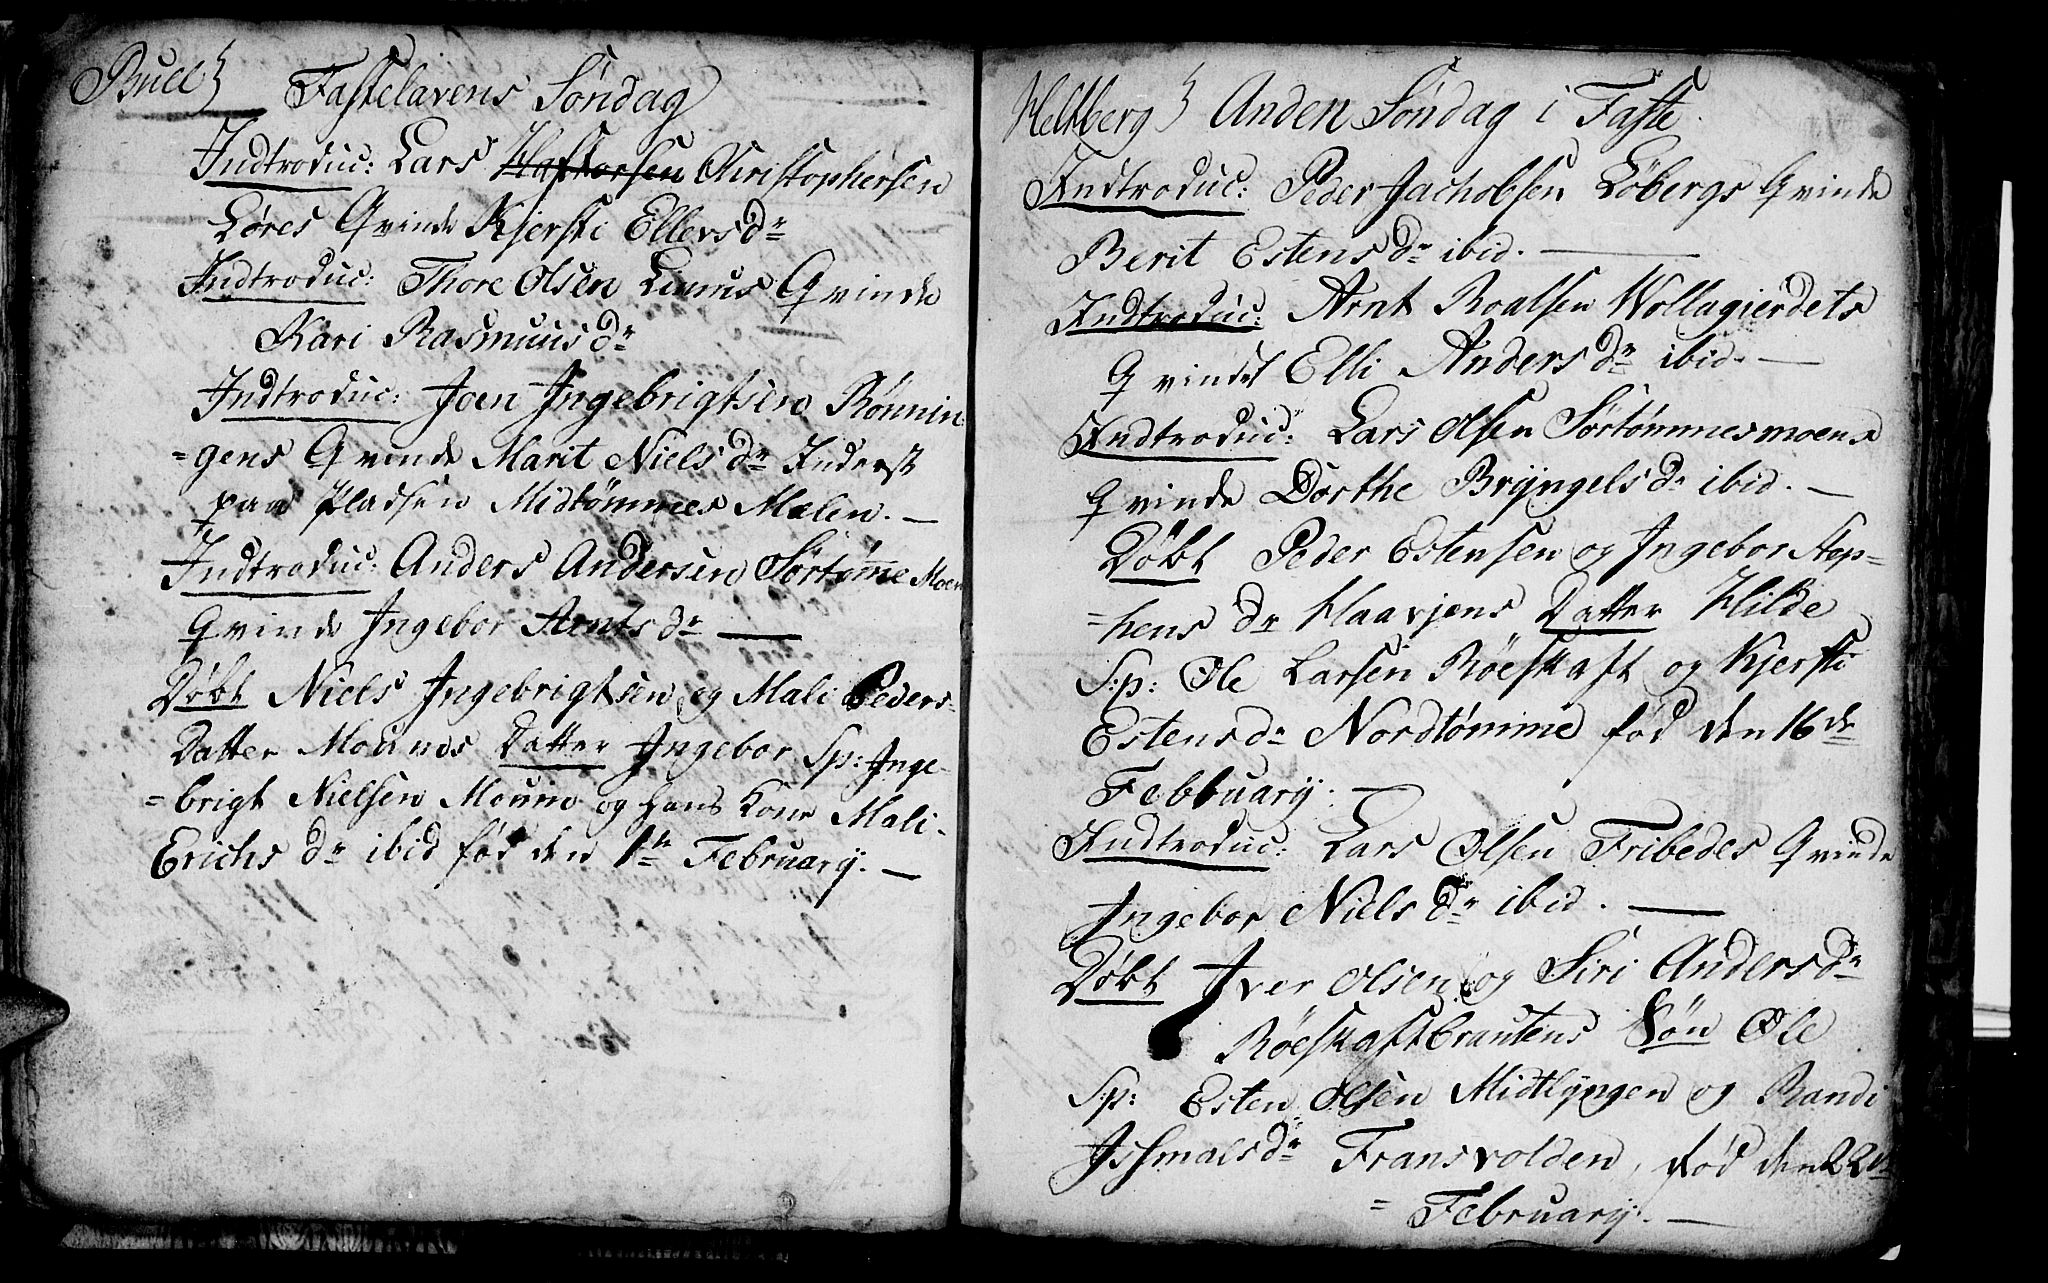 Buell
Fastelavens Söndag
Indtroduc: Lars Hafthorsen Christophersen
Löres Qvinde Kjersti Ellevsdr
Indtroduc: Thore Olsen Liens Qvinde
Kari Rasmuusdr
Indtroduc: Joen Ingebrigtsen Rønnin
=gens Qvinde Marit Nielsdr Inderst
paa Pladsen Midtømmes Mælen. —
Indtroduc: Anders Andersen Sörtømme Moen
Qvinde Ingebor Arntsdr —
Döbt Niels Ingebrigtsen og Mali Peders-
Datter Mounes Datter Ingebor Sp: Inge-
=brigt Nielsen Moune og hans Kone Mali
Erichs dr ibid föd den 1te February. —
Heltberg Anden Søndag i Faste.
Indtroduc: Peder Jachobsen Löbergs Qvinde
Berit Estens dr ibid. —
Indtroduc: Arnt Roalsen Wollagierdets
Qvinde Elli Anders dr ibid. —
Indtroduc: Lars Olsen Sörtømmesmoens
Qvinde Dorthe Brÿngels dr ibid. —
Döbt Peder Estensen og Ingebor Step-
=hens dr Haavjens Datter Hilde
S:p: Ole Larsen Röeskaft og Kjersti
Estensdr Nordtømme föd den 16de
Februarÿ. —
Indtroduc: Lars Olsen Fribedes Qvinde
Ingebor Niels dr ibid. —
Döbt Iver Olsen og Siri Andersdr
Röeskaftbrautens Sön Ole
S:p: Esten Olsen Midtlÿngen og Randi
Issmalsdr Fransvolden, föd den 22de
= Februarÿ. —